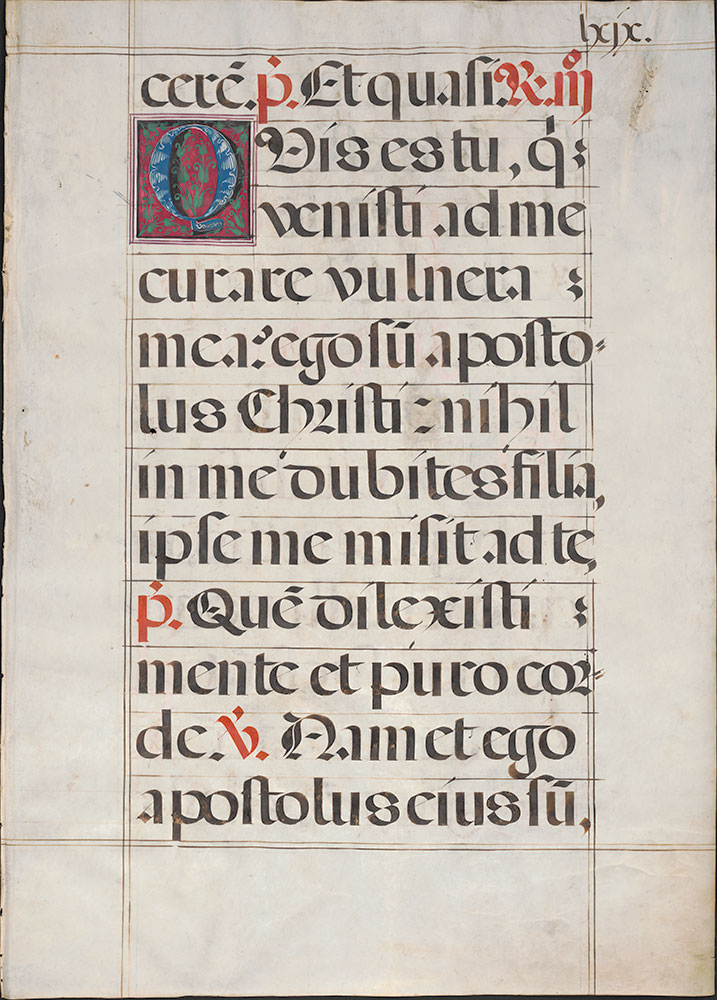 lxix.
cerē. p̄. Et quasi. R. iiij
QVis es tu, q̇
venisti ad me
curare vulnera
mea: ego sū aposto-
lus Christi: nihil
in me dubites filia,
ipse me misit ad te,
p̄. Quē dilexisti
mente et puro cor-
de. V̄. Nam et ego
apostolus eius sū,